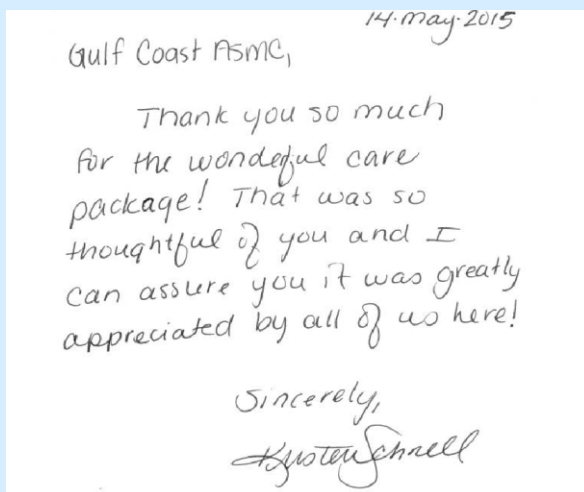 14·May·2015
Gulf Coast ASMC,
Thank you so much
for the wonderful care
package! That was so
thoughtful of you and I
can assure you it was greatly
appreciated by all of us here!
Sincerely,
Kristen Schnell